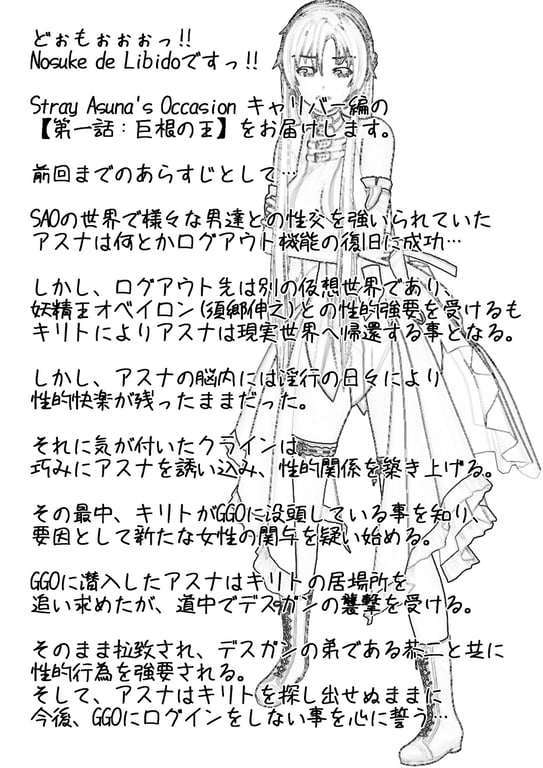 どぉもぉぉぉっ!!
Nosuke de Libidoですっ!!
Stray Asuna's Occasion キャリバー編の
【第一話：巨根の王】をお届けします。
前回までのあらすじとして…
SAOの世界で様々な男達との性交を強いられていた
アスナは何とかログアウト機能の復旧に成功…
しかし、ログアウト先は別の仮想世界であり、
妖精王オベイロン(須郷伸之)との性的強要を受けるも
キリトによりアスナは現実世界へ帰還する事となる。
しかし、アスナの脳内には淫行の日々により
性的快楽が残ったままだった。
それに気が付いたクラインは
巧みにアスナを誘い込み、性的関係を築き上げる。
その最中、キリトがGGOに没頭している事を知り、
要因として新たな女性の関与を疑い始める。
GGOに潜入したアスナはキリトの居場所を
追い求めたが、道中でデスガンの襲撃を受ける。
そのまま拉致され、デスガンの弟である恭二と共に
性的行為を強要される。
そして、アスナはキリトを探し出せぬままに
今後、GGOにログインをしない事を心に誓う…